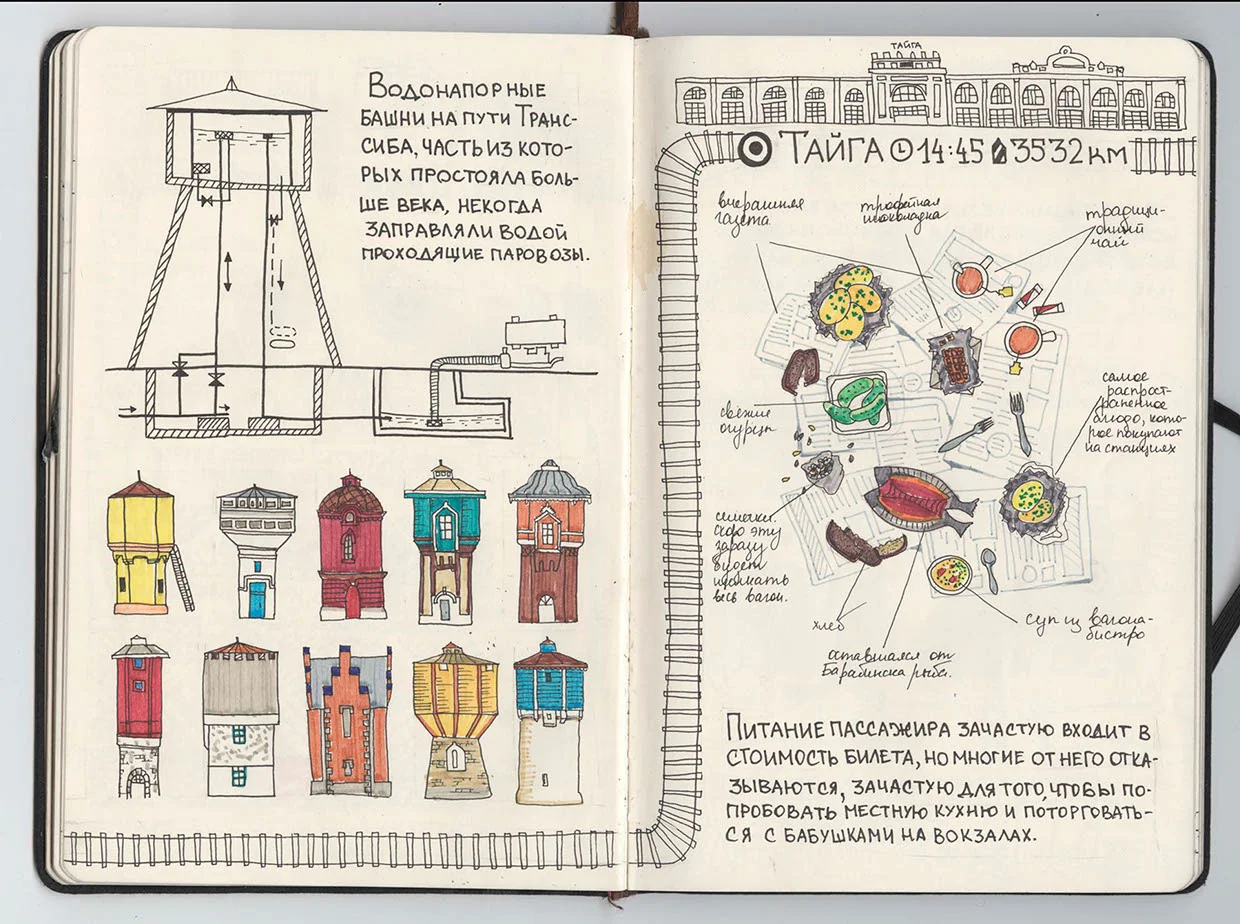 Водонапорные
башни на пути Транс-
сиба, часть из кото-
рых простояла боль-
ше века, некогда
заправляли водой
проходящие паровозы.
ТАЙГА
ТАЙГА 14:45 3532 км
вчерашняя
газета
трофейная
шоколадка
традици-
онный
чай
самое
распрост-
раненное
блюдо, кото-
рое покупают
на станциях
свежие
огурцы
семечки.
Скоро эту
заразу
будет
щелкать
весь вагон.
хлеб
оставшаяся от
Барабинска рыба.
суп из вагона-
бистро
Питание пассажира зачастую входит в
стоимость билета, но многие от него отка-
зываются, зачастую для того, чтобы по-
пробовать местную кухню и поторговать-
ся с бабушками на вокзалах.